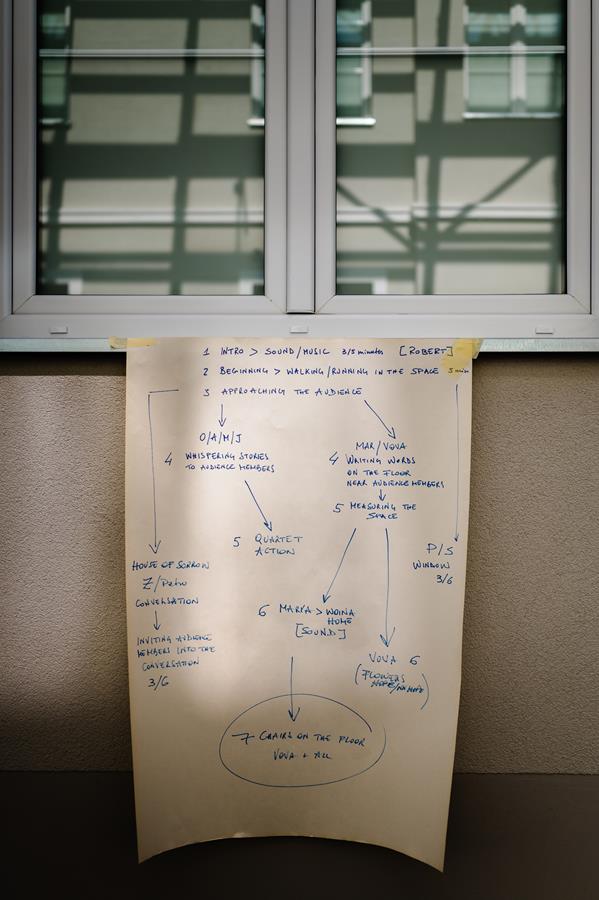 1 INTRO > SOUND/MUSIC 3/5 minutes [ROBERT]
2 BEGINNING > WALKING/RUNNING IN THE SPACE 5 min
3 APPROACHING THE AUDIENCE
O/A/M/J
4 WHISPERING STORIES
TO AUDIENCE MEMBERS
5 QUARTET
ACTION
MAR/VOVA
4 WRITING WORDS
ON THE FLOOR
NEAR AUDIENCE MEMBERS
5 MEASURING THE
SPACE
P/S
WINDOW
3/6
HOUSE OF SORROW
Z/Petro
CONVERSATION
INVITING AUDIENCE
MEMBERS INTO THE
CONVERSATION
3/6
6 MARFA > WOINA
HOME
[SOUND]
VOVA 6
(FLOWERS
7 CHAIRS ON THE FLOOR
VOVA + ALL